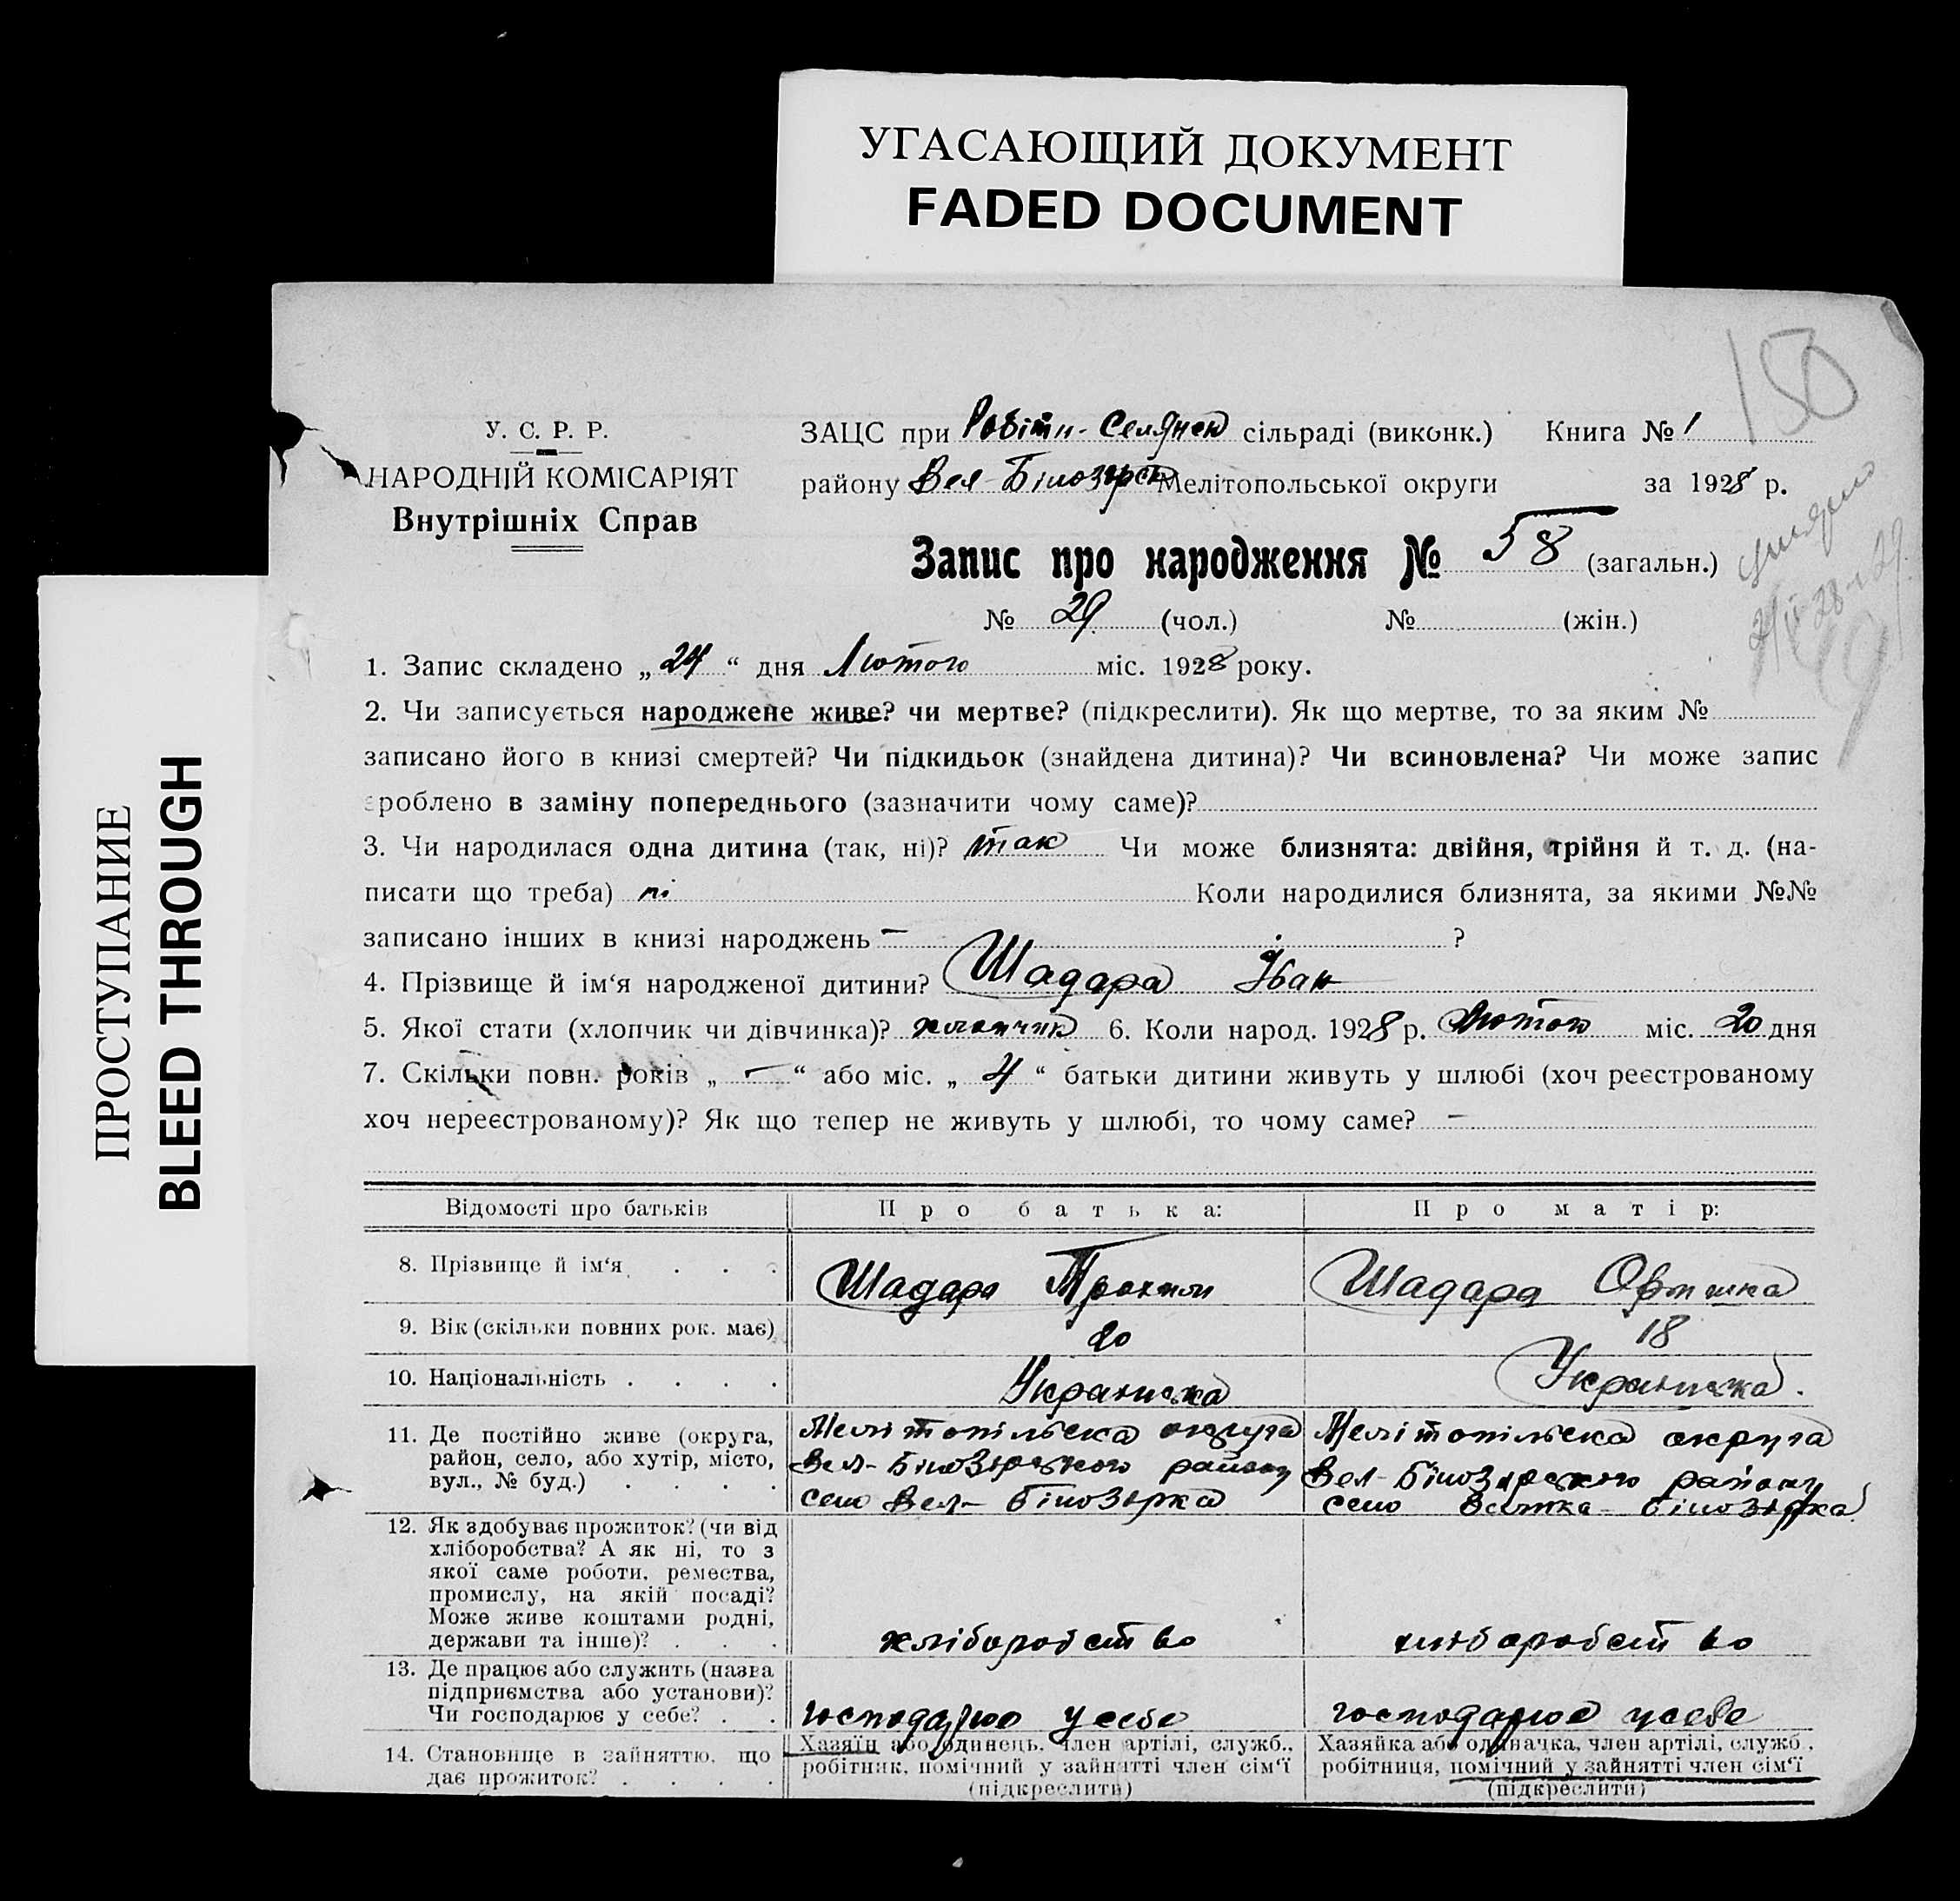 УГАСАЮЩИЙ ДОКУМЕНТ
FADED DOCUMENT
ПРОСТУПАНИЕ
BLEED THROUGH
150
У. С. Р. Р.
НАРОДНІЙ КОМІСАРІЯТ
Внутрішніх Справ
ЗАЦС при Робітн- Селянск сільраді (виконк.) Книга № 1
району Вел-Білозірськ Мелітопольської округи за 1928 р.
Запис про народження № 58 (загальн.)
№ 29 (чол.) № (жін.)
1. Запис складено „24“ дня Лютого міс. 1928 року.
2. Чи записується народжене живе? чи мертве? (підкреслити). Як що мертве, то за яким №
записано його в книзі смертей? Чи підкидьок (знайдена дитина)? Чи всиновлена? Чи може запис
зроблено в заміну попереднього (зазначити чому саме)?
3. Чи народилася одна дитина (так, ні)? так Чи може близнята: двійня, трійня й т. д. (на-
писати що треба) ні Коли народилися близнята, за якими №№
записано інших в книзі народжень — ?
4. Прізвище й ім‘я народженої дитини? Шадара Іван
5. Якої стати (хлопчик чи дівчинка)? хлопчик 6. Коли народ. 1928 р. Лютого міс. 20 дня
7. Скільки повн. років „ — “ або міс. „ 4 “ батьки дитини живуть у шлюбі (хоч реєстрованому
хоч нереєстрованому)? Як що тепер не живуть у шлюбі, то чому саме? —
Відомості про батьків Про батька: Про матір:
8. Прізвище й ім‘я . . . Шадара Шадара
9. Вік (скільки повних рок. має) 20 18
10. Національність . . . . Украинска Украинска.
11. Де постійно живе (округа,
район, село, або хутір, місто,
вул., № буд.) . . . .
Мелітопільска округа
Вел-Білозірського району
село Вел- Білозірка
Мелітопільска округа
Вел-Білозірського району
село Велика-Білозірка
12. Як здобуває прожиток? (чи від
хліборобства? А як ні, то з
якої саме роботи, ремества,
промислу, на якій посаді?
Може живе коштами родні,
держави та інше)? . . .
хліборобство хліборобство
13. Де працює або служить (назва
підприємства або установи)?
Чи господарює у себе? . .
господарює у себе господарює у себе
14. Становище в зайняттю, що
дає прожиток? . . . .
Хазяїн або одинець, член артілі, служб.,
робітник, помічний у зайнятті член сім‘ї
(підкреслити)
Хазяйка або одиначка, член артілі, служб.,
робітниця, помічний у зайнятті член сім‘ї
(підкреслити)